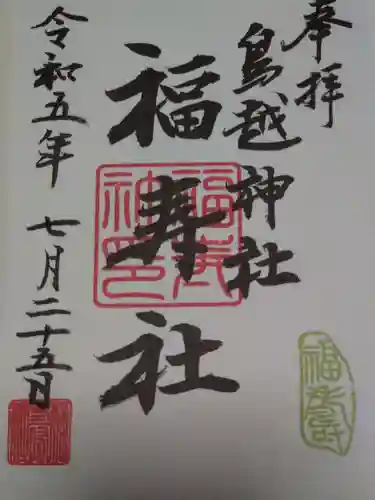 奉拝
鳥越神社
福寿社
令和五年 七月二十五日
福寿
神印
福寿